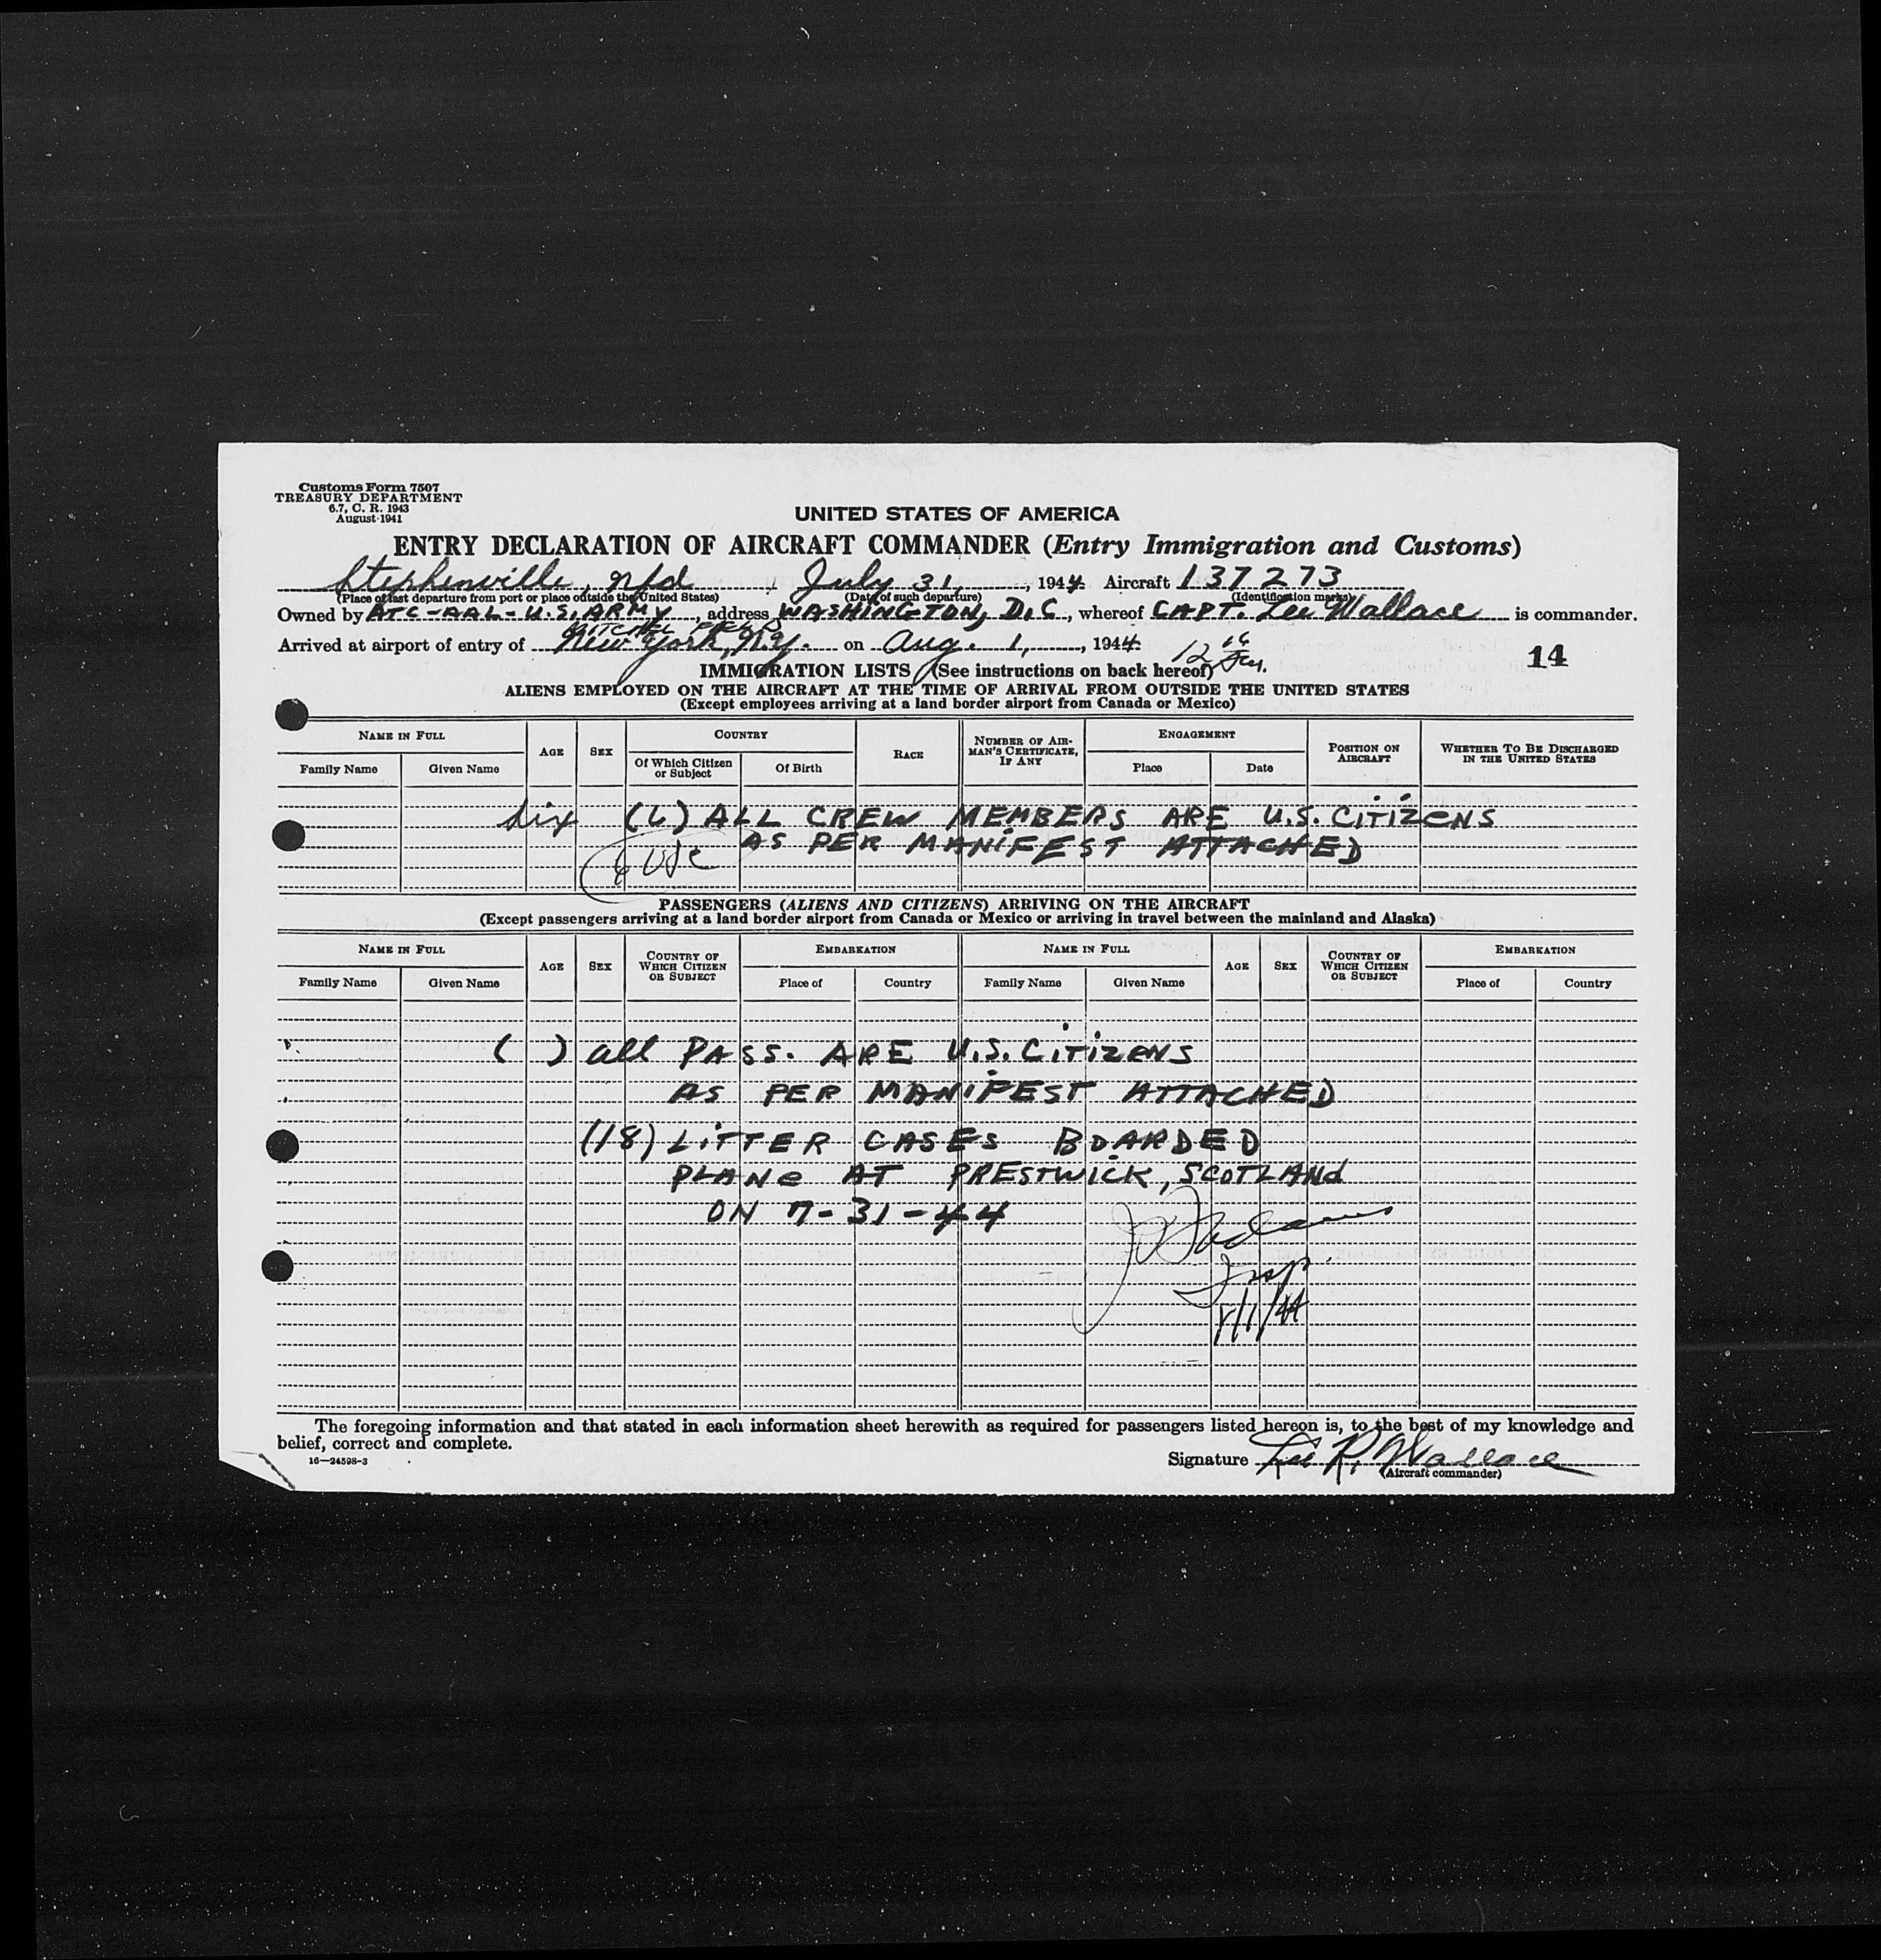 Customs Form 7507
TREASURY DEPARTMENT
6.7, C. R. 1943
August 1941
UNITED STATES OF AMERICA
ENTRY DECLARATION OF AIRCRAFT COMMANDER (Entry Immigration and Customs)
Stephenville, Nfd July 31, 1944 Aircraft 137273
(Place of last departure from port or place outside the United States) (Date of such departure) (Identification marks)
Owned by ATC-AAL-U.S. ARMY, address WASHINGTON, D.C, whereof CAPT. Lee Wallace is commander.
MITCHEL FIELD
Arrived at airport of entry of New York, N.Y. on Aug. 1, 1944
12
14
IMMIGRATION LISTS (See instructions on back hereof)
ALIENS EMPLOYED ON THE AIRCRAFT AT THE TIME OF ARRIVAL FROM OUTSIDE THE UNITED STATES
(Except employees arriving at a land border airport from Canada or Mexico)
NAME IN FULL AGE SEX COUNTRY RACE NUMBER OF AIRMAN'S CERTIFICATE, IF ANY ENGAGEMENT POSITION ON AIRCRAFT WHETHER TO BE DISCHARGED IN THE UNITED STATES
Family Name Given Name Of Which Citizen or Subject Of Birth Place Date
Six (6) ALL CREW MEMBERS ARE U.S. CITIZENS
AS PER MANIFEST ATTACHED
6 USC
PASSENGERS (ALIENS AND CITIZENS) ARRIVING ON THE AIRCRAFT
(Except passengers arriving at a land border airport from Canada or Mexico or arriving in travel between the mainland and Alaska)
NAME IN FULL AGE SEX COUNTRY OF WHICH CITIZEN OR SUBJECT EMBARKATION NAME IN FULL AGE SEX COUNTRY OF WHICH CITIZEN OR SUBJECT EMBARKATION
Family Name Given Name Place of Country Family Name Given Name Place of Country
( ) all PASS. ARE U.S. CITIZENS
AS PER MANIFEST ATTACHED
(18) LITTER CASES BOARDED
PLANE AT PRESTWICK, SCOTLAND
ON 7-31-44
Insp.
8/1/44
The foregoing information and that stated in each information sheet herewith as required for passengers listed hereon is, to the best of my knowledge and
belief, correct and complete.
16—24598-3
Signature Lee R. Wallace
(Aircraft commander)